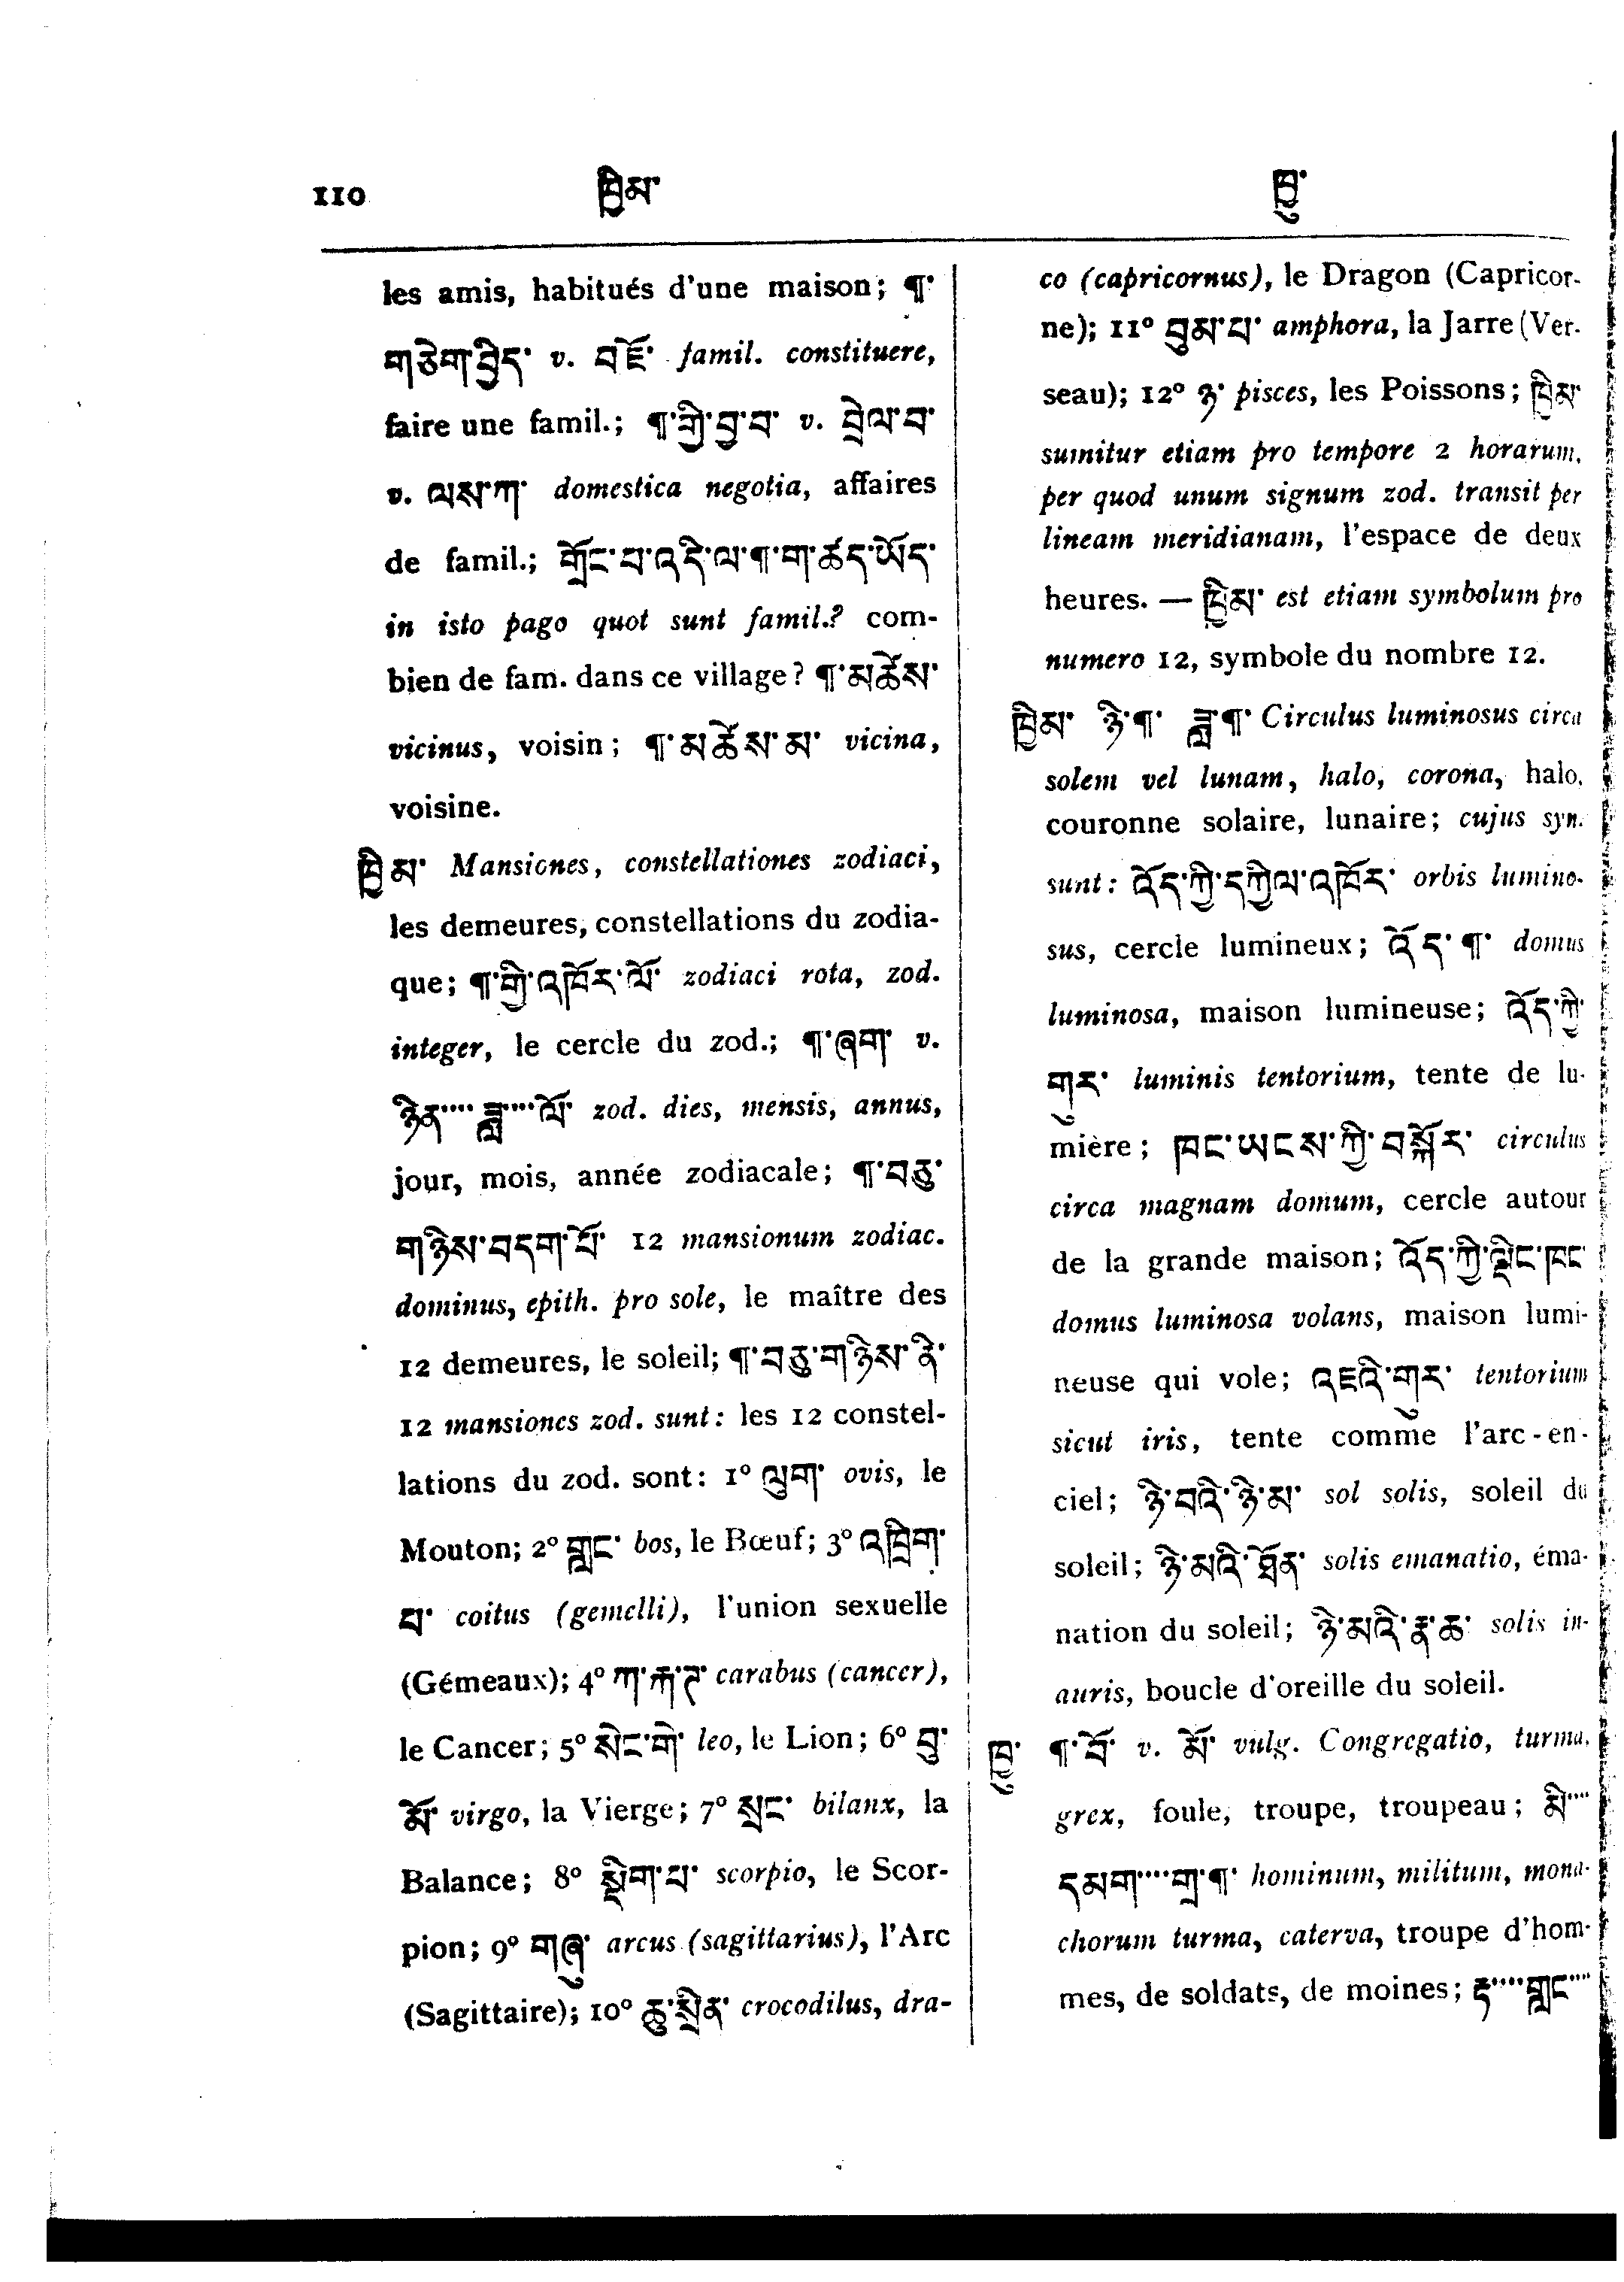 110 ཁྱིམ་ ཁྱུ་
les amis, habitués d'une maison; ¶་
གཅེག་བྱིད་ v. བཛོ་ famil. constituere,
faire une famil.; ¶་གྱི་བྱ་བ་ v. བྲེལ་བ་
v. ལས་ཀ་ domestica negotia, affaires
de famil.; གྲོང་པ་འདི་ལ་¶་ག་ཚད་ཡོད་
in isto pago quot sunt famil.? com-
bien de fam. dans ce village? ¶་མཚེས་
vicinus, voisin; ¶་མཚེས་མ་ vicina,
voisine.
ཁྱིམ་ Mansiones, constellationes zodiaci,
les demeures, constellations du zodia-
que; ¶་གྱི་འཁོར་ལོ་ zodiaci rota, zod.
integer, le cercle du zod.; ¶་ཞག་ v.
ཉིན་···· ཟླ་····ལོ་ zod. dies, mensis, annus,
jour, mois, année zodiacale; ¶་བཅུ་
གཉིས་བདག་པོ་ 12 mansionum zodiac.
dominus, epith. pro sole, le maître des
12 demeures, le soleil; ¶་བཅུ་གཉིས་ནི་
12 mansiones zod. sunt: les 12 constel-
lations du zod. sont: 1° ལུག་ ovis, le
Mouton; 2° གླང་ bos, le Bœuf; 3° འཁྲིག་
པ་ coitus (gemelli), l'union sexuelle
(Gémeaux); 4° ཀ་རྐ་ཊ་ carabus (cancer),
le Cancer; 5° སེང་གེ་ leo, le Lion; 6° བུ་
མོ་ virgo, la Vierge; 7° སྲང་ bilanx, la
Balance; 8° སྡིག་པ་ scorpio, le Scor-
pion; 9° གཞུ་ arcus (sagittarius), l'Arc
(Sagittaire); 10° ཆུ་སྲིན་ crocodilus, dra-
co (capricornus), le Dragon (Capricor-
ne); 11° བུམ་པ་ amphora, la Jarre (Ver-
seau); 12° ཉ་ pisces, les Poissons; ཁྱིམ་
sumitur etiam pro tempore 2 horarum,
per quod unum signum zod. transit per
lineam meridianam, l'espace de deux
heures. — ཁྱིམ་ est etiam symbolum pro
numero 12, symbole du nombre 12.
ཁྱིམ་ ཉི་¶་ ཟླ་¶་ Circulus luminosus circa
solem vel lunam, halo, corona, halo,
couronne solaire, lunaire; cujus syn.
sunt: འོད་ཀྱི་དཀྱིལ་འཁོར་ orbis lumino-
sus, cercle lumineux; འོད་¶་ domus
luminosa, maison lumineuse; འོད་ཀྱི་
གུར་ luminis tentorium, tente de lu-
mière; ཁང་ཡངས་ཀྱི་བསྐོར་ circulus
circa magnam domum, cercle autour
de la grande maison; འོད་ཀྱི་ལྡིང་ཁང་
domus luminosa volans, maison lumi-
neuse qui vole; འཇའི་གུར་ tentorium
sicut iris, tente comme l'arc-en-
ciel; ཉི་བའི་ཉི་མ་ sol solis, soleil du
soleil; ཉི་མའི་ཐོན་ solis emanatio, éma-
nation du soleil; ཉི་མའི་རྣ་ཆ་ solis in-
auris, boucle d'oreille du soleil.
ཁྱུ་ ¶་བོ་ v. མོ་ vulg. Congregatio, turma,
grex, foule, troupe, troupeau; མི་····
དམག་····གྲ་¶་ hominum, militum, mona-
chorum turma, caterva, troupe d'hom-
mes, de soldats, de moines; རྟ་····གླང་····